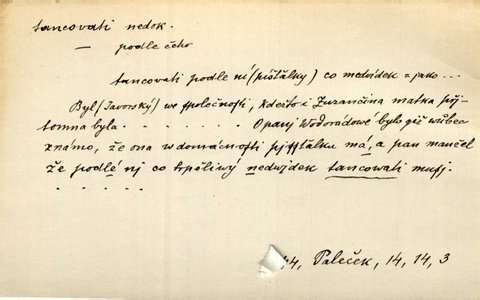 tancovati nedok.
— podle čeho
tancovati podle ní (píšťalky) co medvídek = jako ...
Byl (Javorský) we společnosti, kdežto i Zuzančina matka přj-
tomna byla. . . . . . . . O panj Wodorádowé bylo giž wůbec
známo, že ona w domácnosti pjšťalku má, a pan manžel
že podlé nj co trpěliwý nedwjdek tancowati musj.
. . . . .
44, Paleček, 14, 14, 3